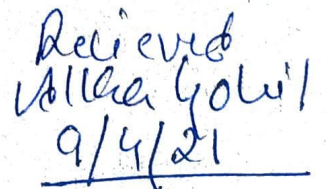 Recieved
Alka Gohil
9/4/21